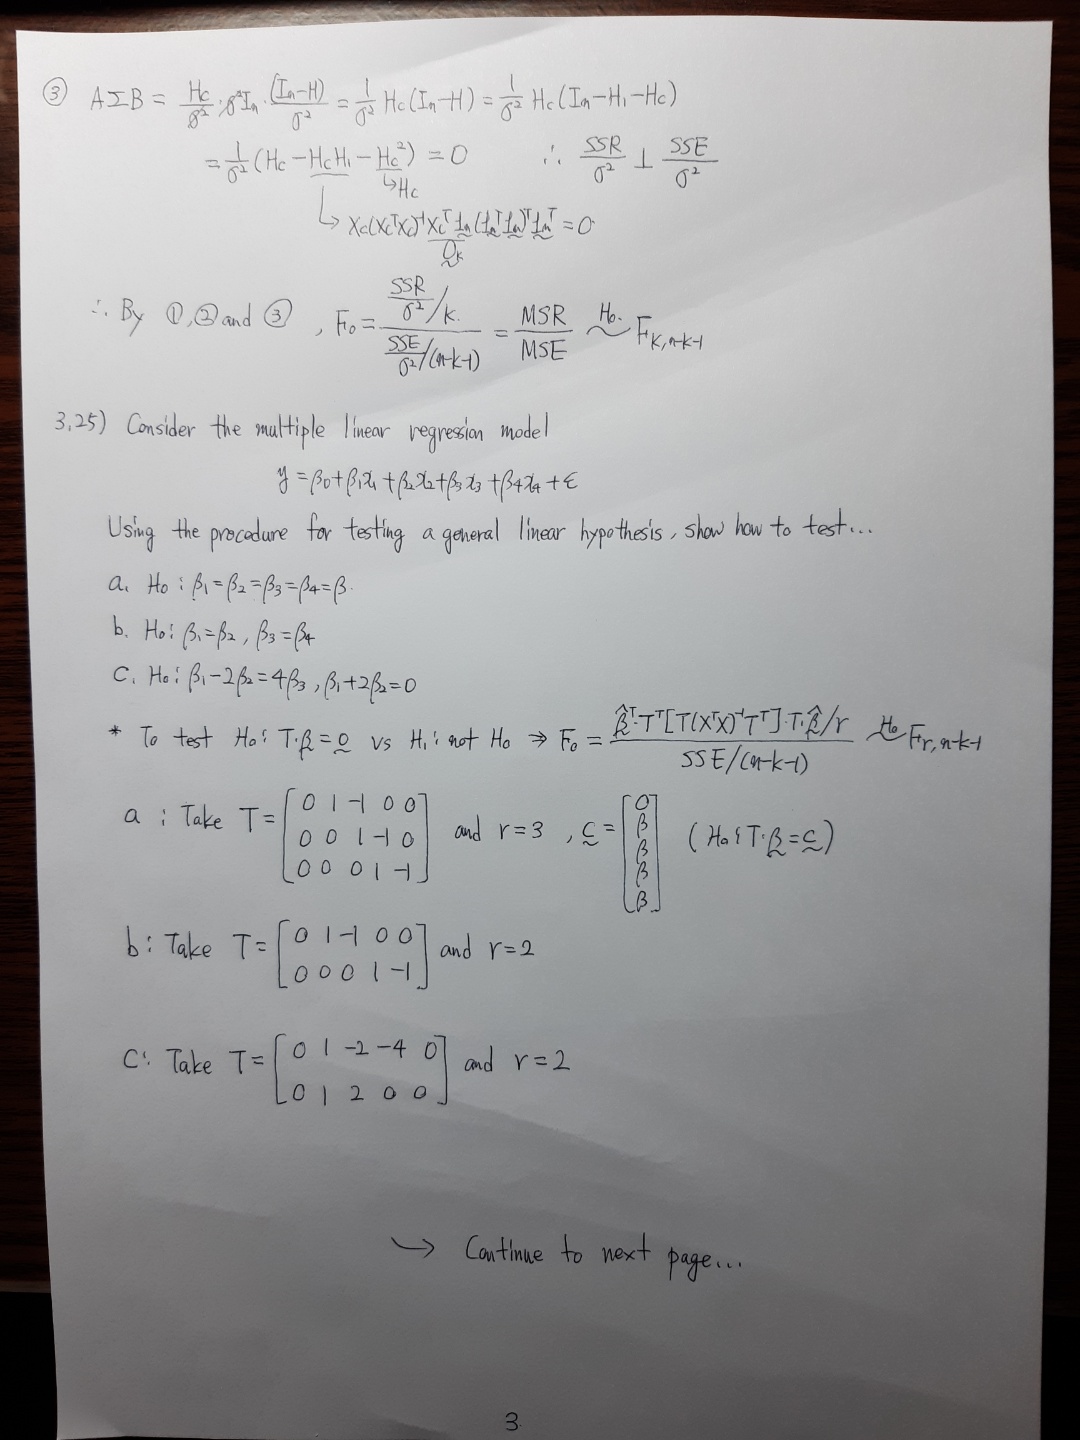 ③ AΣB = Hc/σ² · σ²In · (In-H)/σ² = 1/σ² Hc(In-H) = 1/σ² Hc(In-H₁-Hc)
= 1/σ² (Hc - HcH₁ - Hc²) = 0 ∴ SSR/σ² ⊥ SSE/σ²
↳ Hc
↳ Xc(XcᵀXc)⁻¹Xcᵀ1n(1nᵀ1n)⁻¹1nᵀ = 0
0k
∴ By ①, ② and ③, F₀ = (SSR/σ² / k) / (SSE/σ² / (n-k-1)) = MSR/MSE ~ᴴ⁰ Fk,n-k-1
3.25) Consider the multiple linear regression model
y = β₀+β₁x₁+β₂x₂+β₃x₃+β₄x₄+ε
Using the procedure for testing a general linear hypothesis, show how to test...
a. H₀: β₁=β₂=β₃=β₄=β.
b. H₀: β₁=β₂, β₃=β₄
C. H₀: β₁-2β₂=4β₃, β₁+2β₂=0
* To test H₀: T·β=0 vs H₁: not H₀ ⇒ F₀ = β̂ᵀ·Tᵀ[T(XᵀX)⁻¹Tᵀ]·T·β̂/r / SSE/(n-k-1) ~ᴴ⁰ Fr,n-k-1
a : Take T = [0 1 -1 0 0
0 0 1 -1 0
0 0 0 1 -1] and r=3, c = [0 β β β β] (H₀: T·β=c)
b: Take T = [0 1 -1 0 0
0 0 0 1 -1] and r=2
C: Take T = [0 1 -2 -4 0
0 1 2 0 0] and r=2
→ Continue to next page...
3